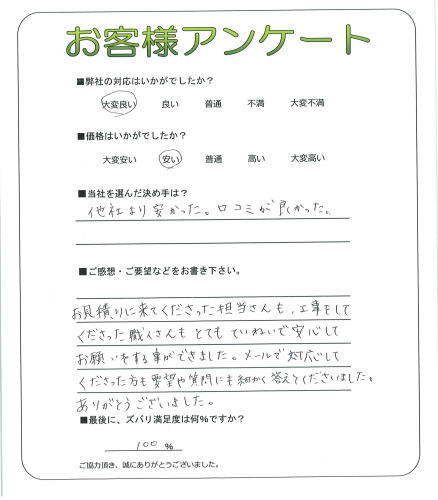 お客様アンケート
■弊社の対応はいかがでしたか？
大変良い 良い 普通 不満 大変不満
■価格はいかがでしたか？
大変安い 安い 普通 高い 大変高い
■当社を選んだ決め手は？
他社より安かった。口コミが良かった。
■ご感想・ご要望などをお書き下さい。
お見積りに来てくださった担当さんも、工事をして
くださった職人さんもとてもていねいで安心して
お願いをする事ができました。メールで対応して
くださった方も要望や質問にも細かく答えてくださいました。
ありがとうございました。
■最後に、ズバリ満足度は何％ですか？
100 ％
ご協力頂き、誠にありがとうございました。